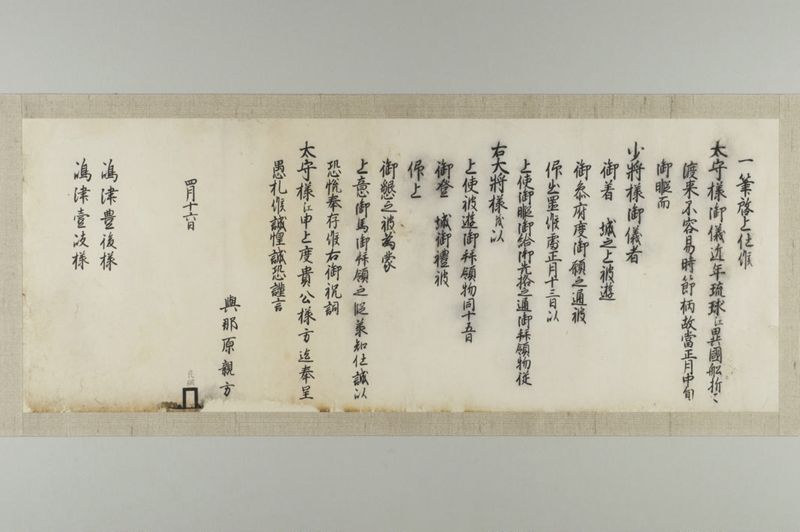 一筆啓上仕候
太守様御儀近年琉球江異國舩折々
渡来不容易時節柄故當正月中旬
御暇而
少将様御儀者
御着　城之上被遊
御参府度御願之通被
仰出置候処正月十三日以
上使御暇御給御先格之通御拝領物従
右大将様茂以
上使被遊御拝領物同十五日
御登　城御禮被
仰上
御懇之被為蒙
上意御馬御拝領之段承知仕誠以
恐悦奉存候右御祝詞
太守様江申上度貴公様方迄奉呈
愚札候誠惶誠恐謹言
與那原親方
四月十六日
嶋津豊後様
嶋津壹岐様